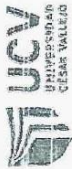 UCV
UNIVERSIDAD
CÉSAR VALLEJO